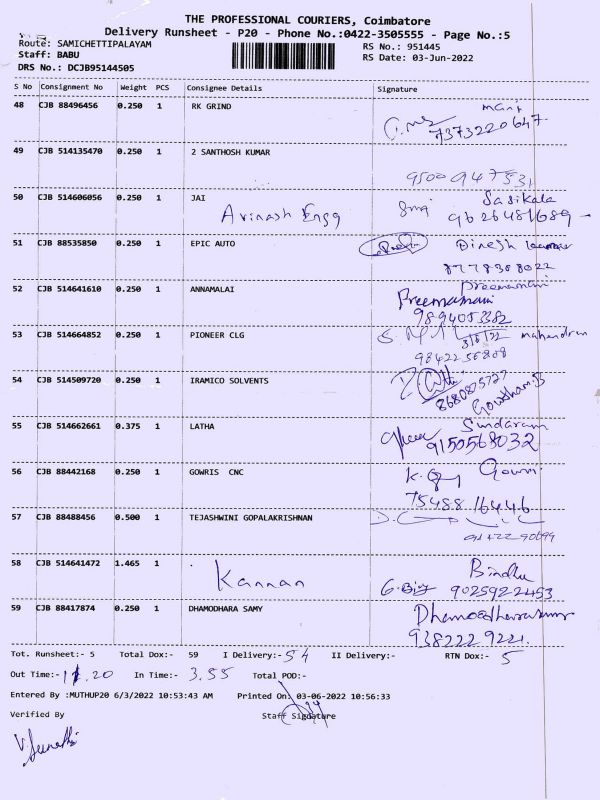 THE PROFESSIONAL COURIERS, Coimbatore
Delivery Runsheet - P20 - Phone No.:0422-3505555 - Page No.:5
Route: SAMICHETTIPALAYAM RS No.: 951445
Staff: BABU RS Date: 03-Jun-2022
DRS No.: DCJB95144505
S No Consignment No Weight PCS Consignee Details Signature
48 CJB 88496456 0.250 1 RK GRIND Mani
7373220647
49 CJB 514135470 0.250 1 2 SANTHOSH KUMAR
9500947531
50 CJB 514606056 0.250 1 JAI Sasikala
Avinash Engg 9626481689
51 CJB 88535850 0.250 1 EPIC AUTO Dinesh kumar
8778308022
52 CJB 514641610 0.250 1 ANNAMALAI Preemamani
Preemamani
9894053382
53 CJB 514664852 0.250 1 PIONEER CLG 3/6/22 mahendran
9842256808
54 CJB 514509720 0.250 1 IRAMICO SOLVENTS
8680875727 Gowtham.S
55 CJB 514662661 0.375 1 LATHA Sundaram
9150568032
56 CJB 88442168 0.250 1 GOWRIS CNC Gowri
75488 16446
57 CJB 88488456 0.500 1 TEJASHWINI GOPALAKRISHNAN
58 CJB 514641472 1.465 1 Bindhu
Kannan 9025922453
59 CJB 88417874 0.250 1 DHAMODHARA SAMY Dhamodharasamy
938222 9221
Tot. Runsheet:- 5 Total Dox:- 59 I Delivery:- 54 II Delivery:- RTN Dox:- 5
Out Time:- 11.20 In Time:- 3.55 Total POD:-
Entered By :MUTHUP20 6/3/2022 10:53:43 AM Printed On: 03-06-2022 10:56:33
Verified By Staff Signature